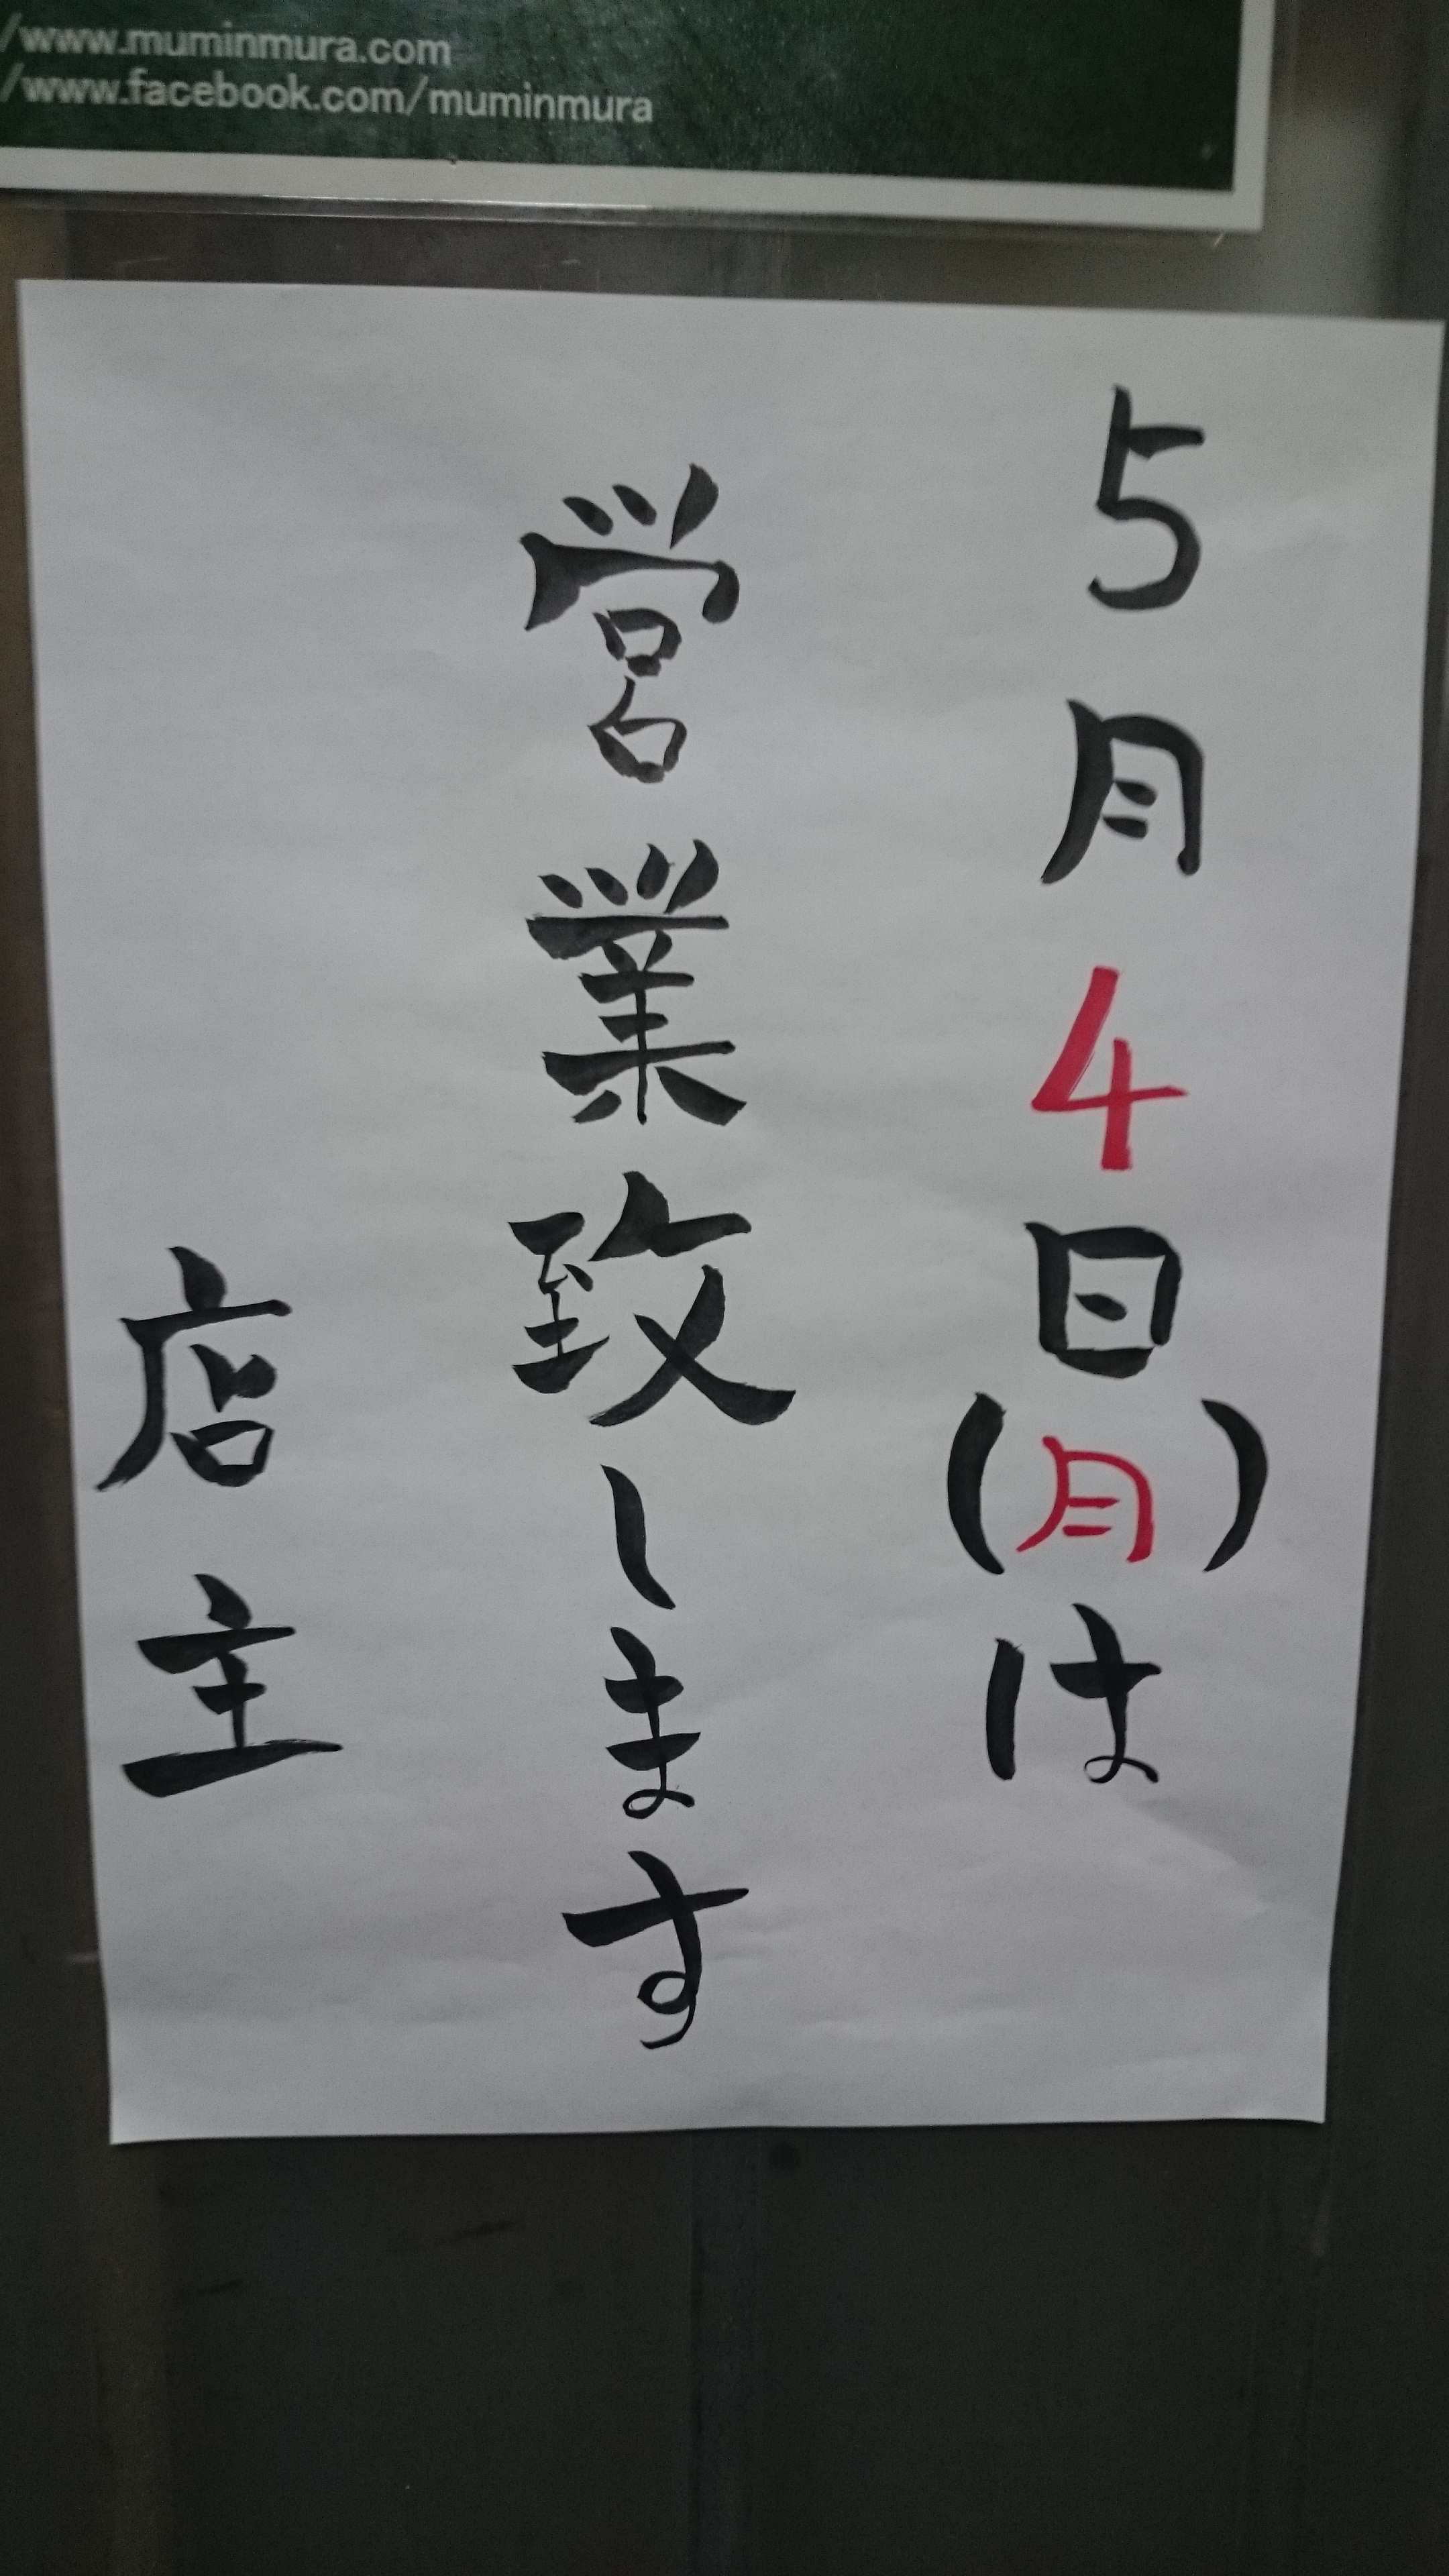 /www.muminmura.com
/www.facebook.com/muminmura
5月4日(月)は
営業致します
店主